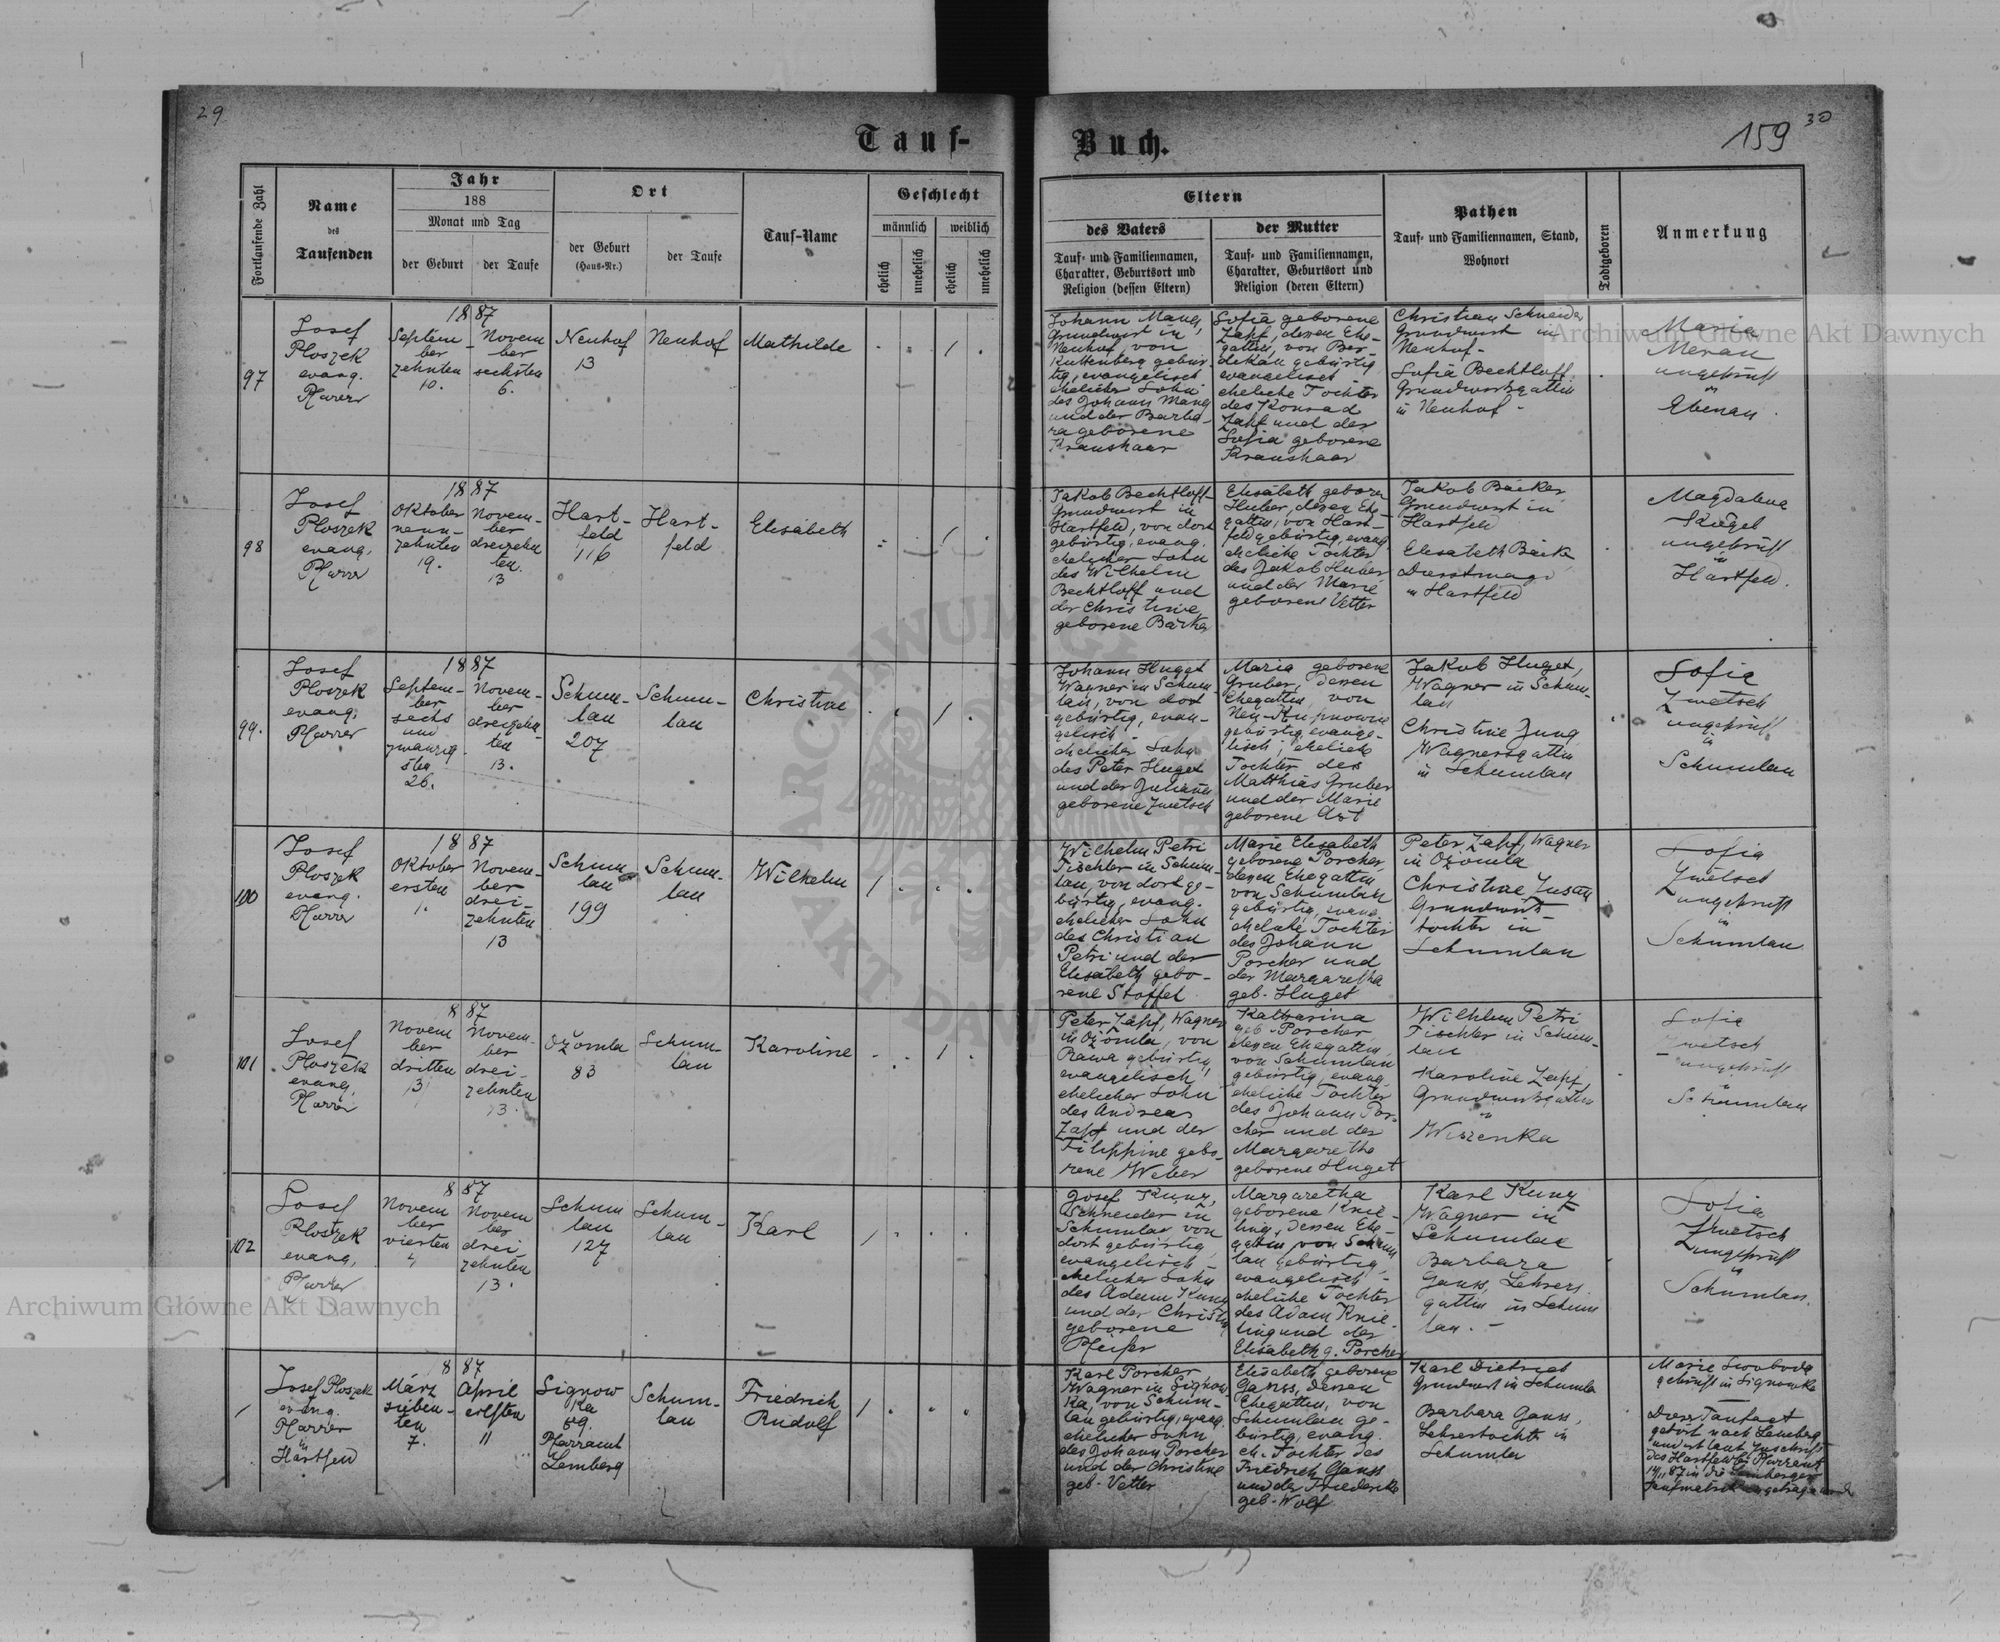 29
30
159
Tauf-
Buch.
Fortlaufende Zahl
Name
des
Taufenden
Jahr
188
Monat und Tag
der Geburt
der Taufe
Ort
der Geburt
(Haus-Nr.)
der Taufe
Tauf-Name
Geschlecht
männlich
weiblich
ehelich
unehelich
ehelich
unehelich
Eltern
des Vaters
Tauf- und Familiennamen,
Charakter, Geburtsort und
Religion (dessen Eltern)
der Mutter
Tauf- und Familiennamen,
Charakter, Geburtsort und
Religion (deren Eltern)
Pathen
Tauf- und Familiennamen, Stand,
Wohnort
Todtgeboren
Anmerkung
97
Josef
Ploszek
evang.
Pfarrer
1887
Septem-
ber
zehnten
10.
Novem
ber
sechsten
6.
Neuhof
13
Neuhof
Mathilde
1
Johann Mang,
Grundwirt in
Neuhof, von
Kuttenberg gebür-
tig, evangelisch
ehelicher Sohn
des Johann Mang
und der Barba-
ra geborene
Kraushaar
Sofia geborene
Zapf, deren Ehe-
gattin, von Ber-
dikau gebürtig,
evangelisch
eheliche Tochter
des Konrad
Zapf und der
Sofia geborene
Kraushaar
Christian Schneider
Grundwirt in
Neuhof-
Sofia Bechtloff,
Grundwirtsgattin
in Neuhof-
Maria
Meran
ungeprüft
in
Ebenau.
98
Josef
Ploszek
evang.
Pfarrer
1887
Oktober
neun-
zehnten
19.
Novem-
ber
dreizehn
ten
13
Hart-
feld
116
Hart-
feld
Elisabeth
1
Jakob Bechtloff-
Grundwirt in
Hartfeld, von dort
gebürtig, evang.
ehelicher Sohn
des Wilhelm
Bechtloff und
der Christine,
geborene Bäcker
Elisabeth geboren
Huber, deren Ehe-
gattin, von Hart-
feld gebürtig, evang
eheliche Tochter
des Jakob Huber
und der Marie
geborene Vetter
Jakob Bäcker
Grundwirt in
Hartfeld
Elisabeth Bäck
Dienstmagd
in Hartfeld
Magdalena
Kugel
ungeprüft
in
Hartfeld.
99.
Josef
Ploszek
evang.
Pfarrer
1887
Septem-
ber
sechs
und
zwanzig-
sten
26.
Novem-
ber
dreizehn-
ten
13.
Schum-
lau
207
Schum-
lau
Christine
1
Johann Huget
Wagner in Schum-
lau, von dort
gebürtig, evan-
gelisch
ehelicher Sohn
des Peter Huget
und der Juliana
geborene Zwetsch
Maria geborene
Gruber, dessen
Ehegattin, von
Neu-Kupnowice
gebürtig, evange-
lisch, eheliche
Tochter des
Matthias Gruber
und der Marie
geborene Ast
Jakob Huget,
Wagner in Schum-
lau
Christine Jung
Wagnersgattin
in Schumlau
Sofia
Zwetsch
ungeprüft
in
Schumlau
100
Josef
Ploszek
evang.
Pfarrer
1887
Oktober
ersten
1.
Novem-
ber
drei-
zehnten
13
Schum
lau
199
Schum-
lau
Wilhelm
1
Wilhelm Petri
Tischler in Schum-
lau, von dort ge-
bürtig, evang.
ehelicher Sohn
des Christian
Petri und der
Elisabeth gebo-
rene Stoffel
Marie Elisabeth
geborene Porcher,
deren Ehegattin
von Schumlau
gebürtig, evang.
eheliche Tochter
des Johann
Porcher und
der Margaretha
geb. Huget
Peter Zapf, Wagner
in Ožomla
Christine
Grundwirts-
tochter in
Schumlau
Sofia
Zwetsch
ungeprüft
in
Schumlau.
101
Josef
Ploszek
evang.
Pfarrer
887
Novem
ber
dritten
3
Novem-
ber
drei-
zehnten
13.
Ožomla
83
Schum-
lau
Karoline
1
Peter Zapf, Wagner
in Ožomla, von
Rawa gebürtig,
evangelisch,
ehelicher Sohn
des Andreas
Zapf und der
Filippine gebo-
rene Weber
Katharina
geb. Porcher
deren Ehegattin,
von Schumlau
gebürtig, evang.
eheliche Tochter
des Johann Por-
cher und der
Margaretha
geborene Huget
Wilhelm Petri
Tischler in Schum-
lau
Karoline Zapf
Grundwirtsgattin
in
Wiszenka
Sofia
Zwetsch
ungeprüft
in
Schumlau
102
Josef
Ploszek
evang.
Pfarrer
887
Novem
ber
vierten
4
Novem
ber
drei-
zehnten
13.
Schum
lau
127
Schum-
lau
Karl
1
Josef Kunz,
Schneider in
Schumlau von
dort gebürtig,
evangelisch-
ehelicher Sohn
des Adam Kunz
und der Christin
geborene
Pfeifer
Margaretha
geborene Knie-
ling, dessen Ehe-
gattin von Schum
lau gebürtig,
evangelisch-
eheliche Tochter
des Adam Knie-
ling und der
Elisabeth g. Porcher
Karl Kunz
Wagner in
Schumlau
Barbara
Gauss, Lehrers
gattin in Schum
lau.-
Sofia
Zwetsch
ungeprüft
in
Schumlau.
1
Josef Ploszek
evang.
Pfarrer
in
Hartfeld
887
März
sieben-
ten
7.
April
eilften
11
Signow
ka
59.
Pfarramt
Lemberg
Schum-
lau
Friedrich
Rudolf
1
Karl Porcher
Wagner in Signow-
ka, von Schum-
lau gebürtig, evang.
ehelicher Sohn
des Johann Porcher
und der Christine
geb. Vetter
Elisabeth geborene
Gauss, dessen
Ehegattin, von
Schumlau ge-
bürtig, evang.
eh. Tochter des
Friedrich Gauss
und der Friederike
geb. Wolf
Karl Dietrich
Grundwirt in Schumlau
Barbara Gauss,
Lehrerstochter in
Schumlau
Marie Swoboda
geprüft in Signowka
Dieser Taufact
gehört nach Lemberg
und ist laut Zuschrift
des Hartfelder Pfarramt
14/11 87 in die Lemberger
Taufmatrik eingetragen
Archiwum Główne Akt Dawnych
Archiwum Główne Akt Dawnych
ARCHIWUM GŁÓWNE AKT DAWNYCH